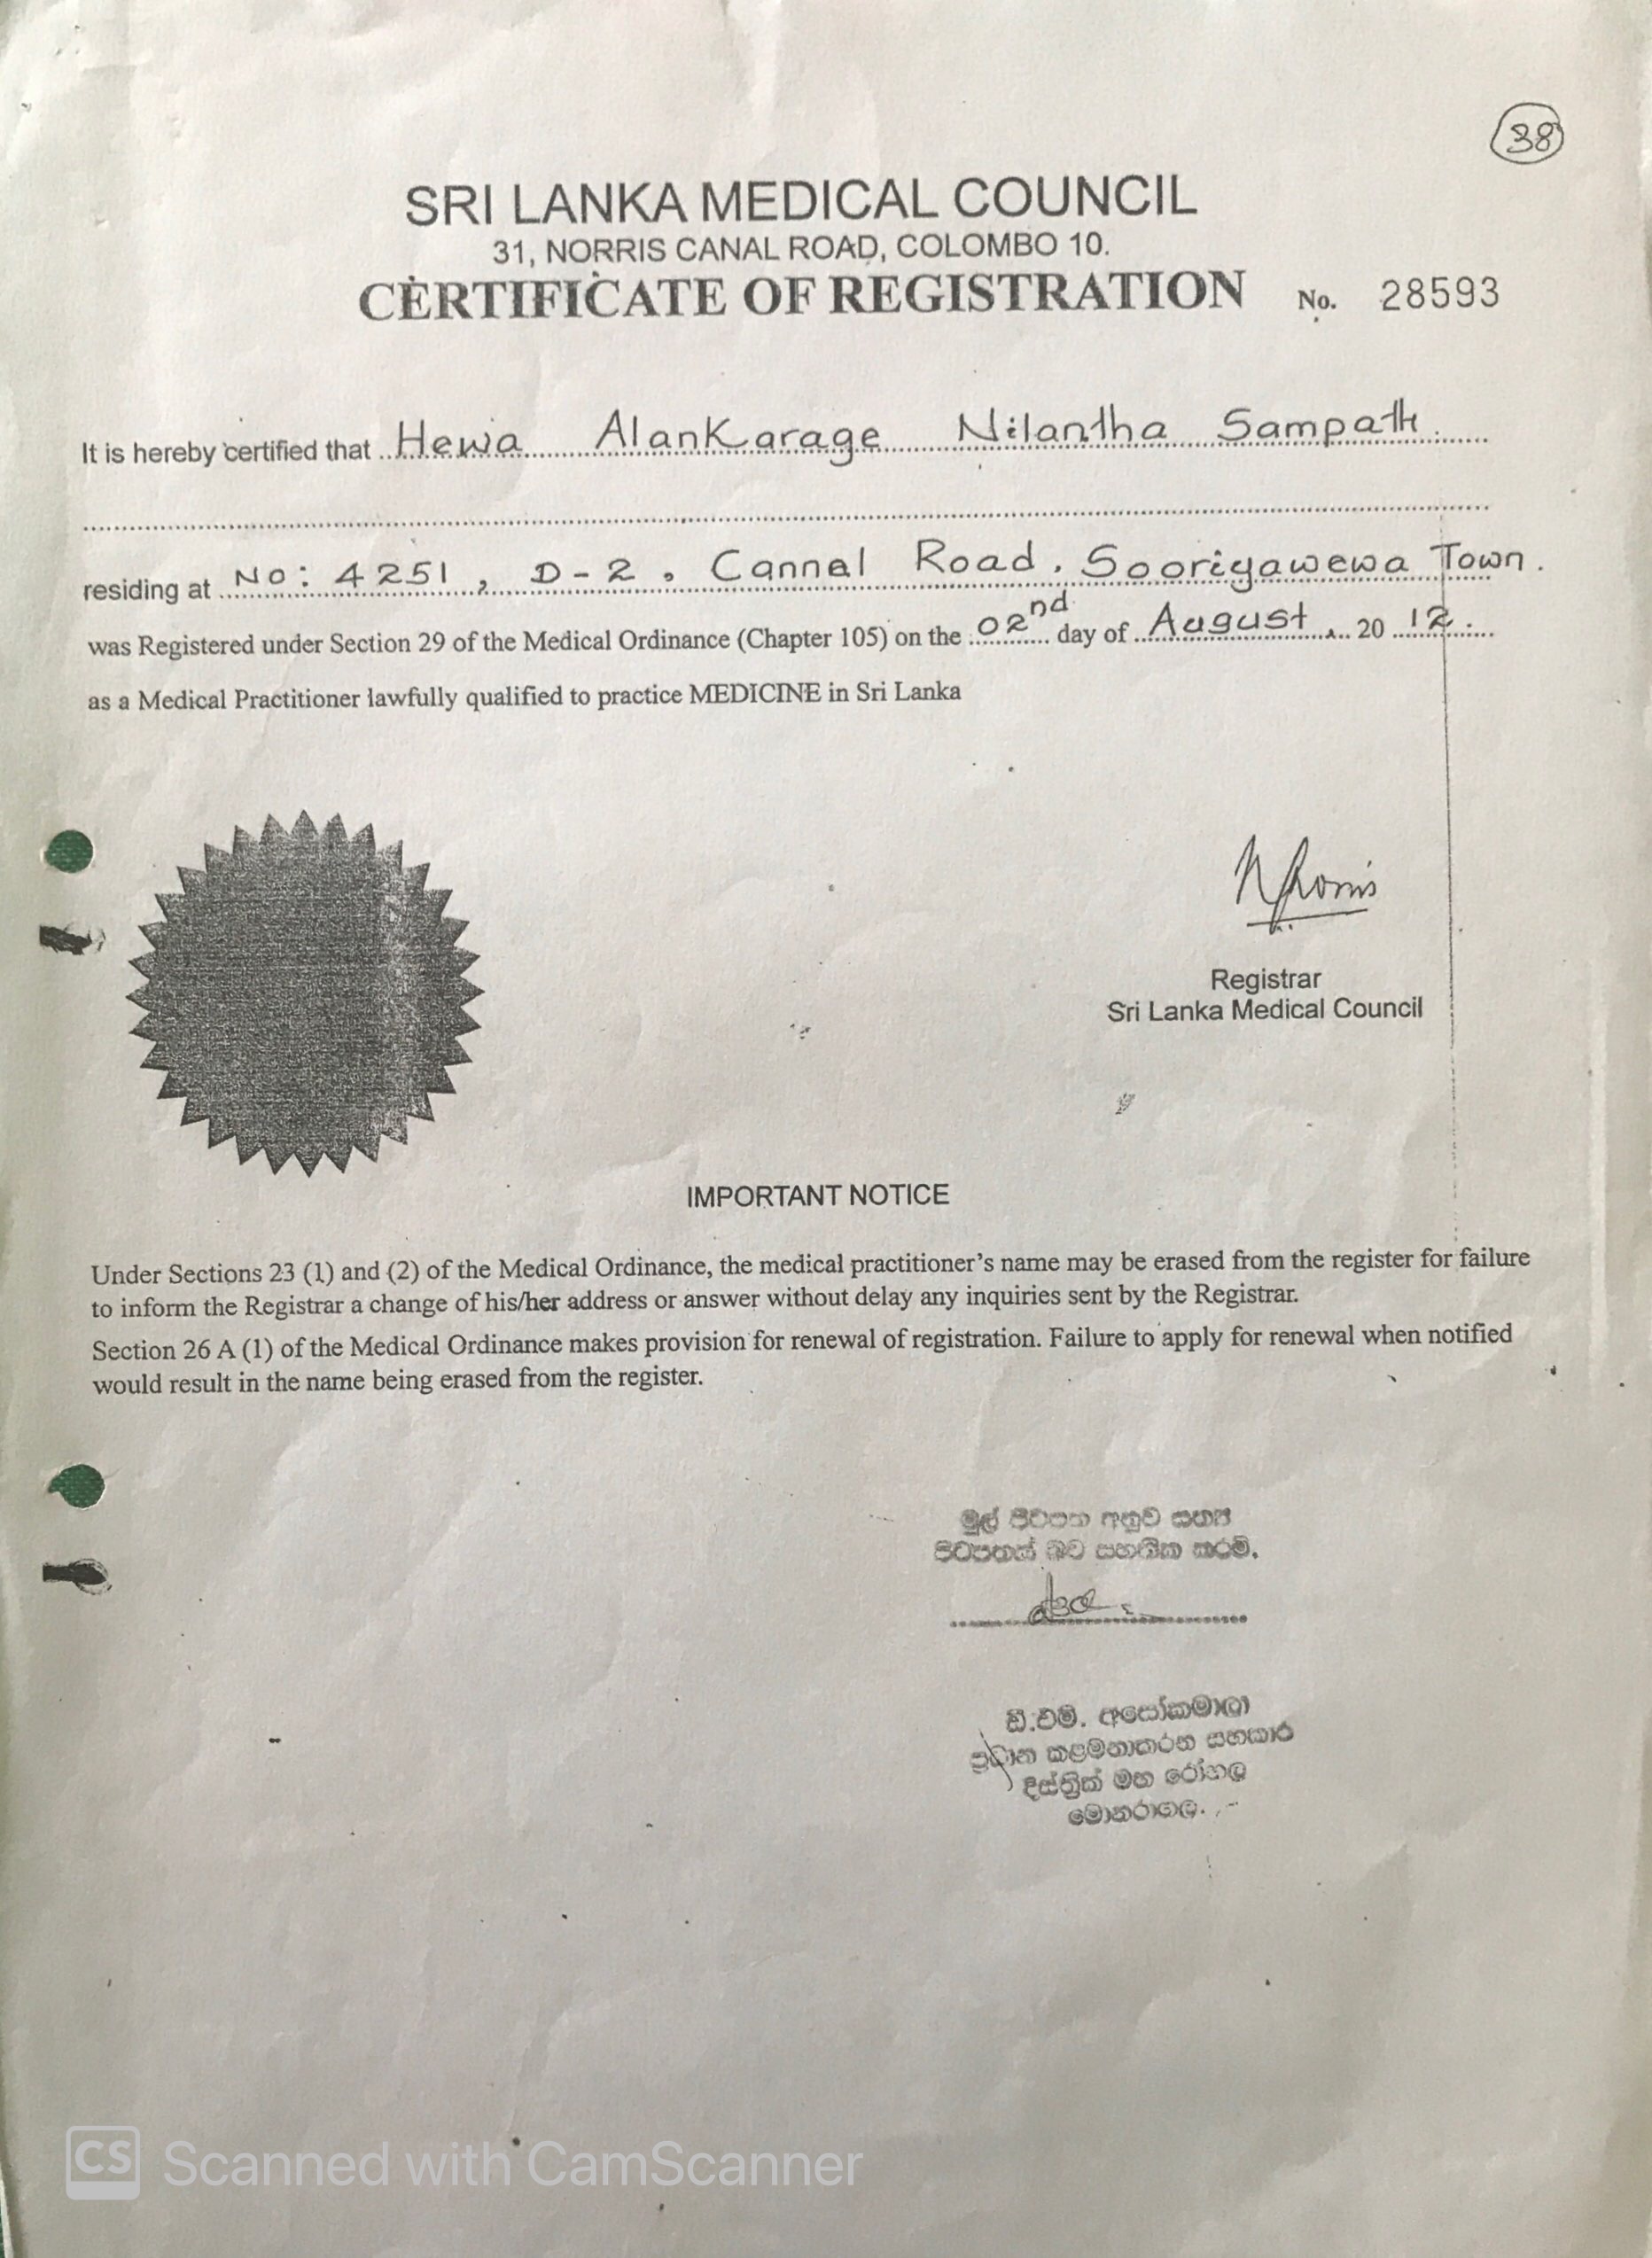 38
SRI LANKA MEDICAL COUNCIL
31, NORRIS CANAL ROAD, COLOMBO 10.
CERTIFICATE OF REGISTRATION No. 28593
It is hereby certified that Hewa Alankarage Nilantha Sampath
residing at No: 4251, D-2, Cannal Road, Sooriyawewa Town.
was Registered under Section 29 of the Medical Ordinance (Chapter 105) on the 02nd day of August 2012.
as a Medical Practitioner lawfully qualified to practice MEDICINE in Sri Lanka
Registrar
Sri Lanka Medical Council
IMPORTANT NOTICE
Under Sections 23 (1) and (2) of the Medical Ordinance, the medical practitioner's name may be erased from the register for failure
to inform the Registrar a change of his/her address or answer without delay any inquiries sent by the Registrar.
Section 26 A (1) of the Medical Ordinance makes provision for renewal of registration. Failure to apply for renewal when notified
would result in the name being erased from the register.
මුල් පිටපත අනුව සත්‍ය
පිටපතක් බව සහතික කරමි.
ඩී.එම්. අසෝකමාලා
ප්‍රධාන කළමනාකරන සහකාර
දිස්ත්‍රික් මහ රෝහල
මොනරාගල.
CS Scanned with CamScanner